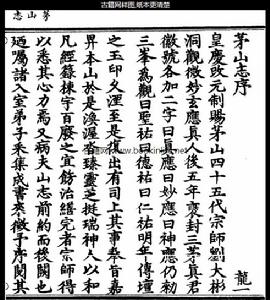 古籍网样图,纸本更清楚
茅山志
茅山志序
龍一
皇慶改元制賜茅山四十五代宗師劉大彬
洞觀微妙玄應真人後五年褒封三茅真君
徽號各加二字曰真應曰妙應曰神應仍勑
三峯為觀曰聖祐曰德祐曰仁祐明年傳壇
之玉印久湮至是復出有司上其事奉旨嘉
昇本山於是渙渥沓臻靈芝挺瑞神人以和
凡經籙棟宇百廢之宜飭治繕完者宗師得
以悉其心力焉又病夫山志前約而後闕也
廼囑諸入室弟子采集成書來徵予序閱其